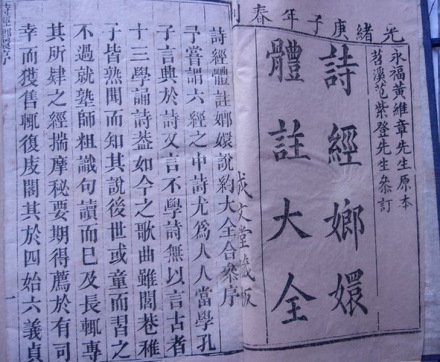 光緒庚子年春刊
永福黃維章先生原本
苕溪范紫登先生叅訂
詩經嫏嬛
體註大全
成文堂藏板
詩經體註嫏嬛說約大全合叅序
予嘗謂六經之中詩尤爲人人當學孔
子言興於詩又言不學詩無以言古者
十三學誦詩葢如今之歌曲雖閭巷稚
子皆熟聞而知其說後世或童而習之
不過就塾師粗識句讀而巳及長輒專
其所肄之經揣摩秘要期得薦於有司
幸而獲售輒復庋閣其於四始六義貞
一